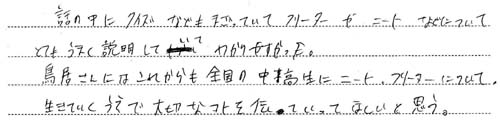 話の中にクイズなどもまざっていてフリーターやニートなどについて
とてもうまく説明していてわかりやすかった。
鳥居さんにはこれからも全国の中高生にニート、フリーターについて、
生きていくうえで大切なコトを伝っていってほしいと思う。